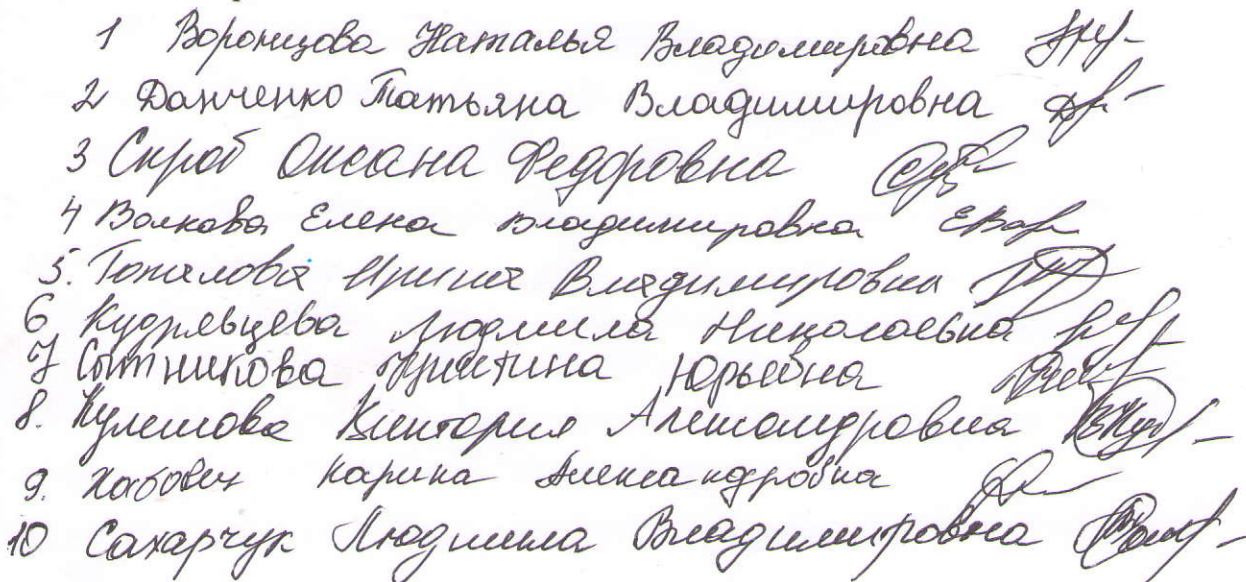 1 Воронцова Наталья Владимировна
2 Данченко Татьяна Владимировна
3 Скроб Оксана Федоровна
4 Волкова Елена Владимировна
5. Топилова Ирина Владимировна
6 Кудрявцева Людмила Николаевна
7 Сытникова Кристина Юрьевна
8. Кулешова Виктория Александровна
9. Карина Александровна
10 Сахарчук Людмила Владимировна